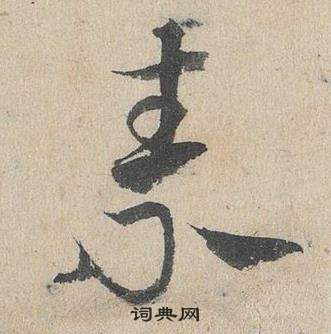 素
词典网